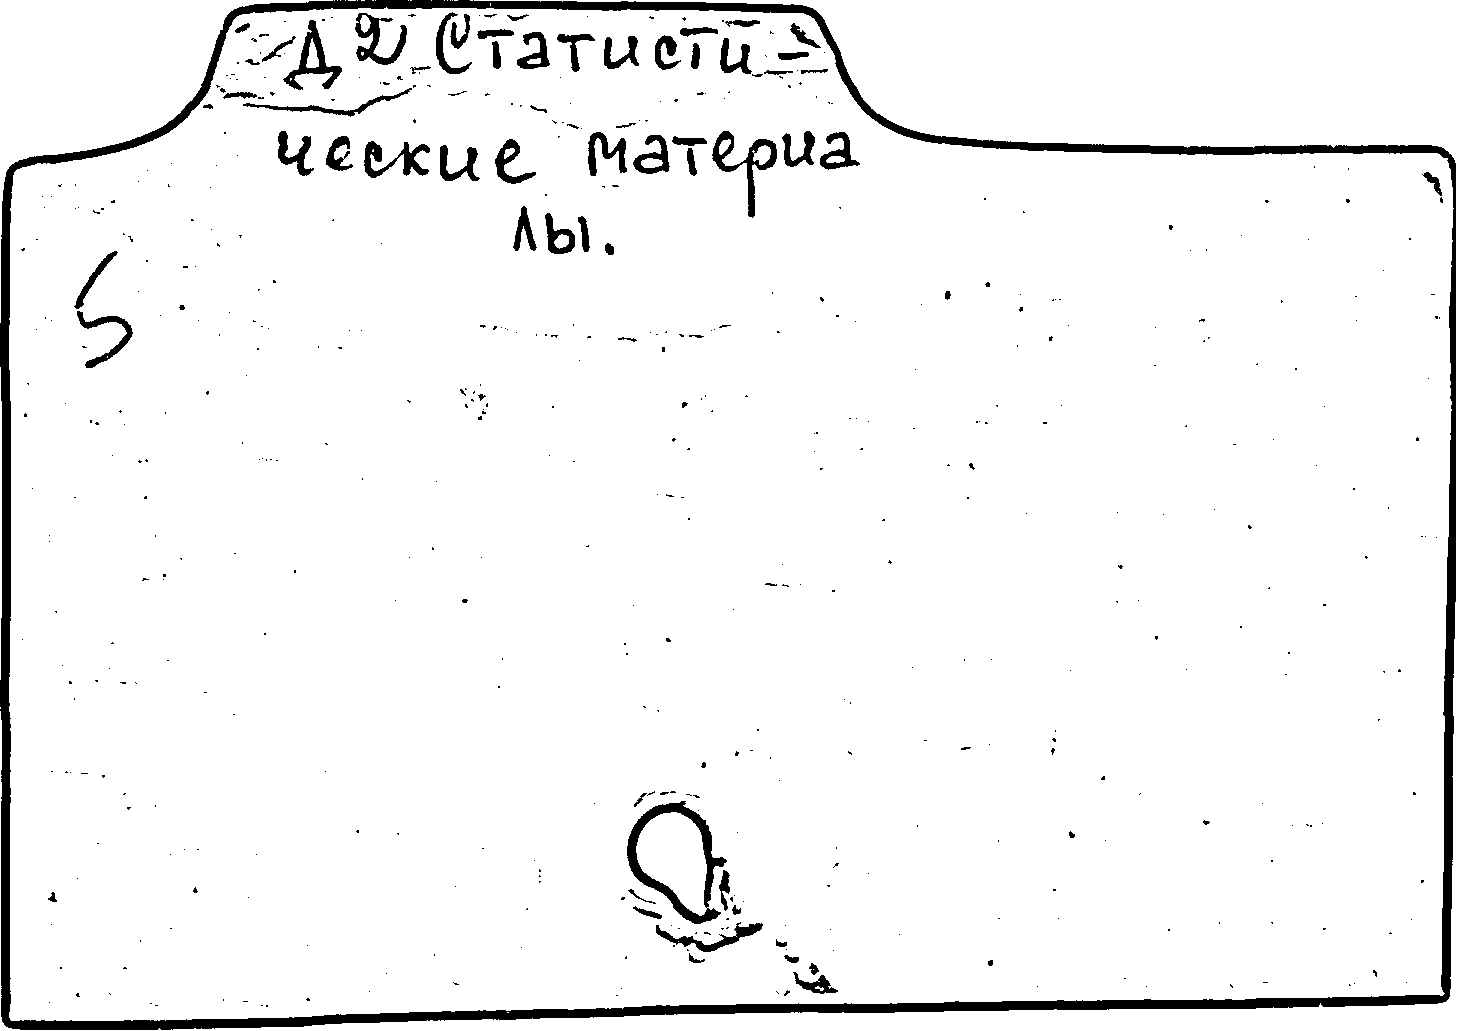 Д2 Статисти-
ческие материа
лы.
5